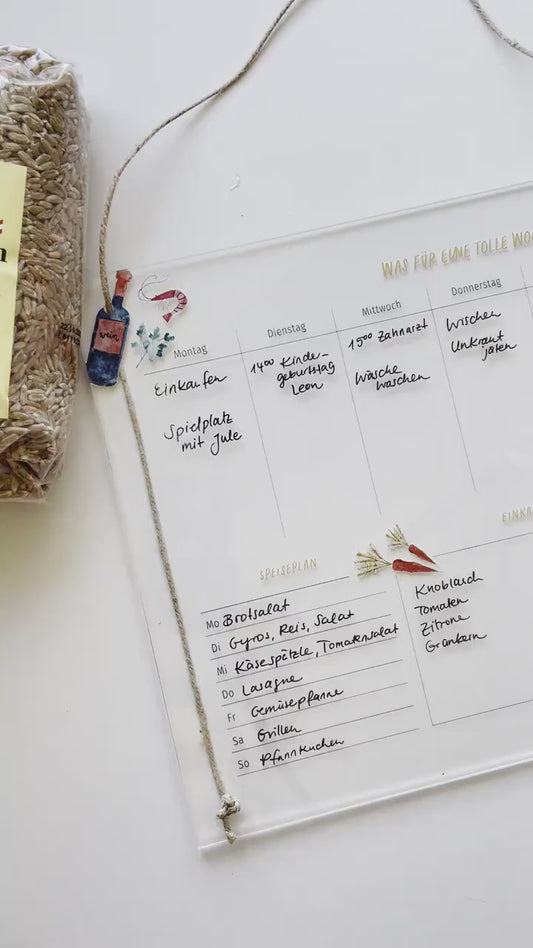 WAS FÜR EINE TOLLE
Montag
Einkaufen
Spielplatz
mit Jule
Dienstag
14⁰⁰ Kinder-
geburtstag
Leon
Mittwoch
15⁰⁰ Zahnarzt
Wäsche
waschen
Donnerstag
Wischen
Unkraut
jäten
wein
SPEISEPLAN
Mo Brotsalat
Di Gyros, Reis, Salat
Mi Käsespätzle, Tomatensalat
Do Lasagne
Fr Gemüsepfanne
Sa Grillen
So Pfannkuchen
EINKA
Knoblauch
Tomaten
Zitrone
Grünkern